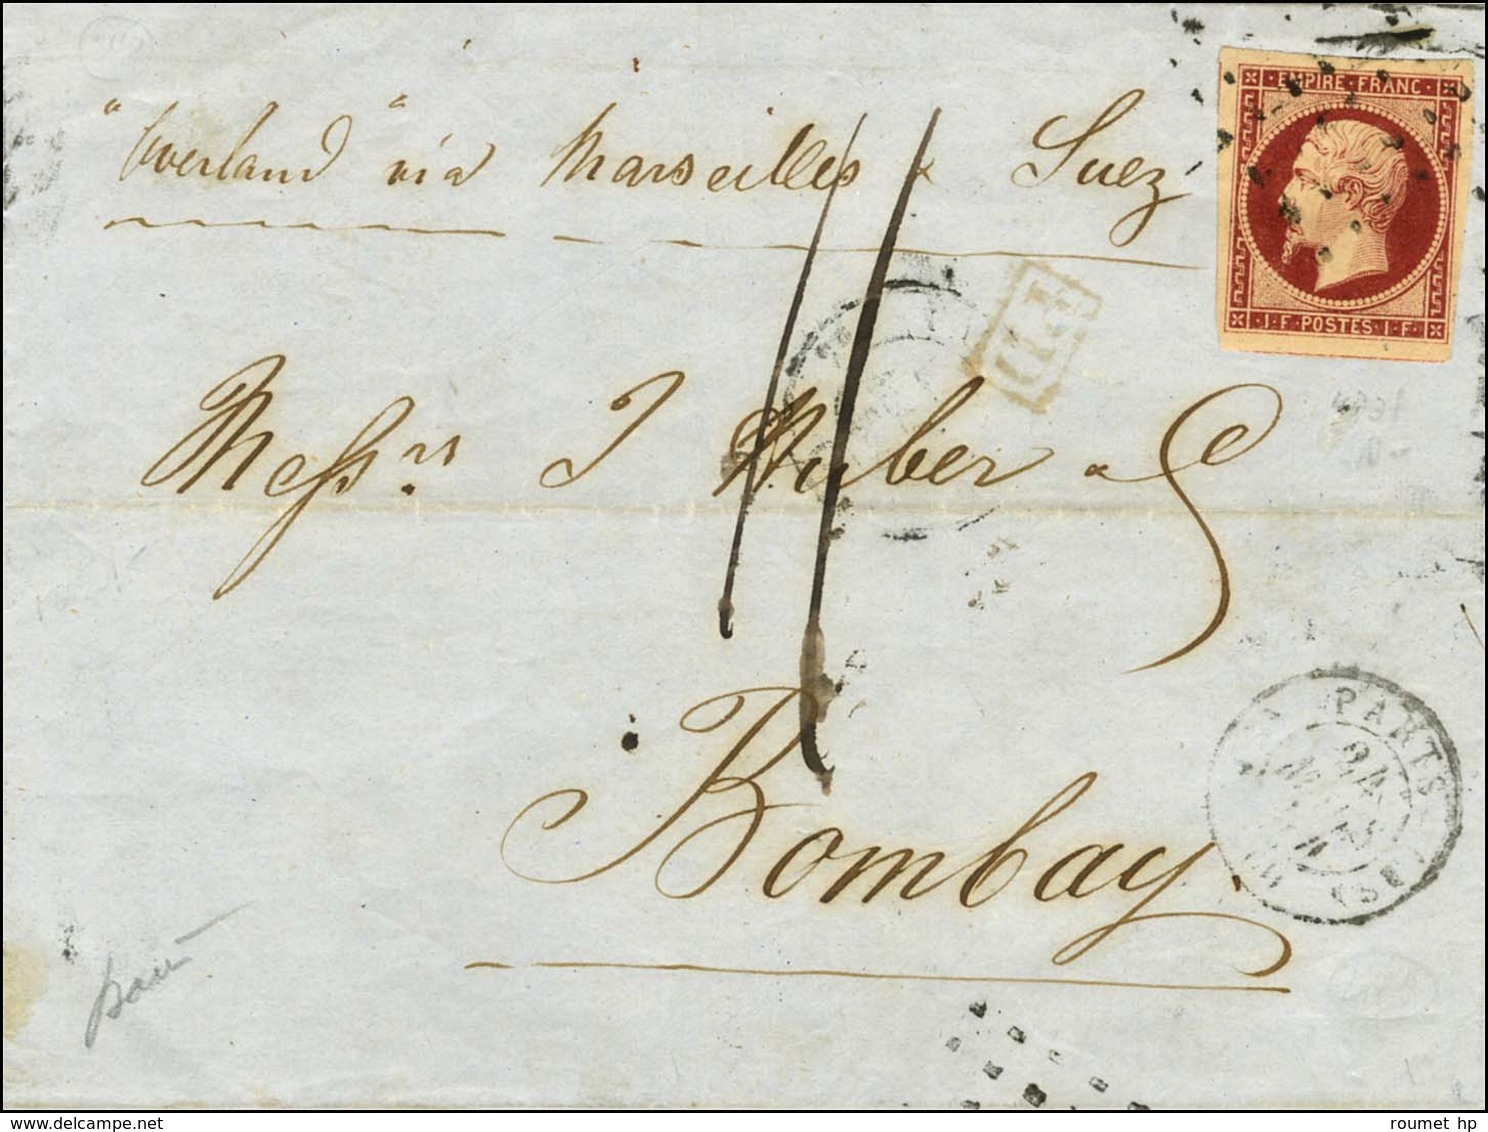 "Overland" via Marseilles & Suez
EMPIRE · FRANC ·
· J · F · POSTES · I · F ·
PD
Messrs J Huber & Co
Bombay
PARIS
www.delcampe.net
roumet hp